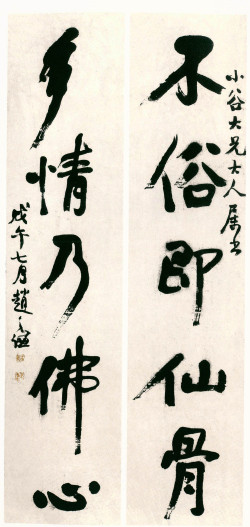 小谷大兄大人属书
不俗即仙骨
多情乃佛心
戊午七月趙之谦